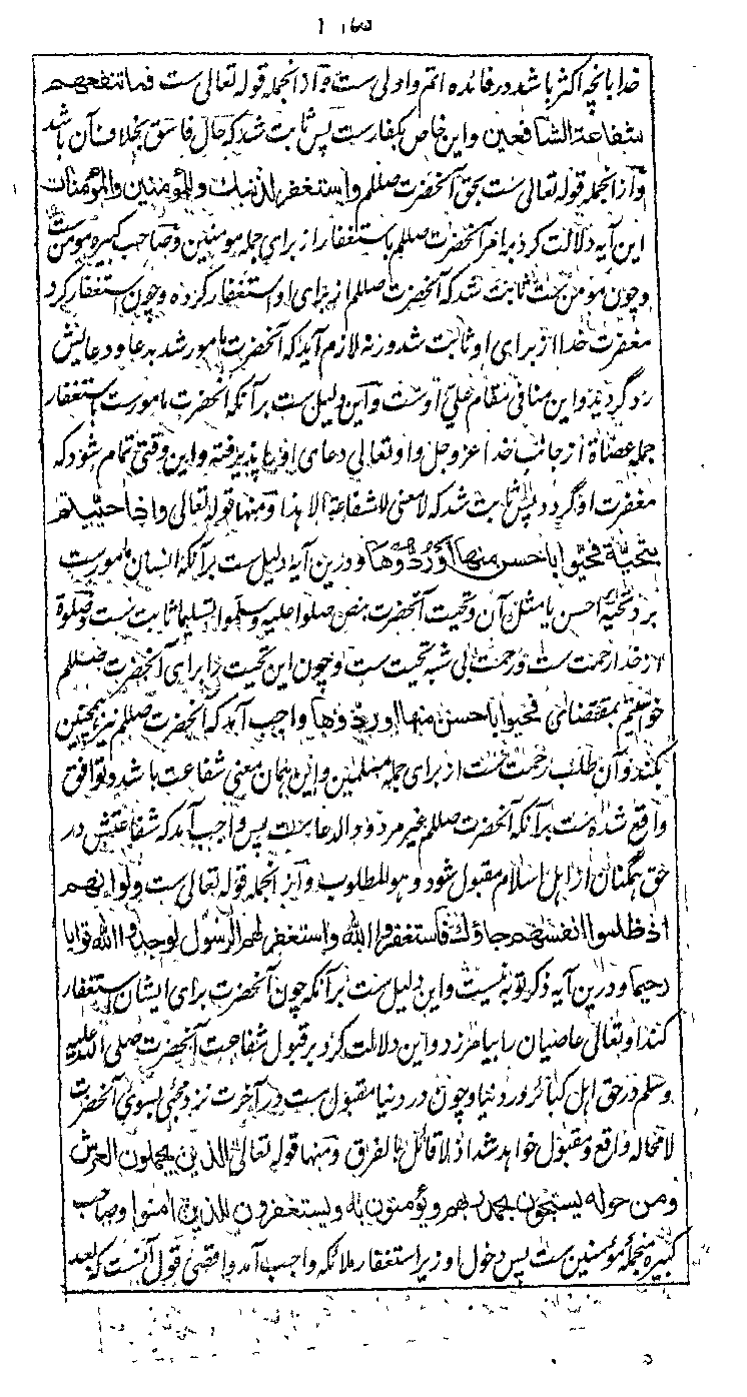 خدا بانچه اکثر باشد در فائده اتم و اولی ست و از انجمله قوله تعالی ست فما تنفعهم
شفاعة الشافعین و این خاص بکفار ست پس ثابت شد که حال فاسق بخلاف آن باشد
و از انجمله قوله تعالی ست بحق آنحضرت صللم و استغفر لذنبك وللمؤمنین والمؤمنات
این آیه دلالت کرد بر امر آنحضرت صللم باستغفار از برای جمله مومنین و صاحب کبیره مومن ست
و چون مومن ست ثابت شد که آنحضرت صللم از برای او استغفار کرده و چون استغفار کرد
مغفرت خدا از برای او ثابت شد ورنه لازم آید که آنحضرت مامور شد بدعا و دعایش
رد گردید و این منافی مقام علیّ اوست و این دلیل ست بر آنکه آنحضرت مامور ست باستغفار
جمله عصاة از جانب خدا عز وجل و او تعالی دعای او را پذیرفته و این وقتی تمام شود که
مغفرت او گردد پس ثابت شد که لا معنی للشفاعة الا هذا و منها قوله تعالی واذا حییتم
بتحیة فحیوا باحسن منها او ردوها و درین آیه دلیل ست بر آنکه انسان مامور ست
برد تحیه احسن یا مثل آن و تحیت آنحضرت بنص صلوا علیه وسلموا تسلیما ثابت ست و صلوة
از خدا رحمت ست و رحمت بی شبه تحیت ست و چون این تحیت را برای آنحضرت صللم
خواستیم بمقتضای فحیوا باحسن منها او ردوها واجب آمد که آنحضرت صللم نیز همچنین
بکند و آن طلب رحمت ست از برای جمله مسلمین و این همان معنی شفاعت باشد و توافق
واقع شده ست بر آنکه آنحضرت صللم غیر مردود الدعا ست پس واجب آمد که شفاعتش در
حق همگنان از اهل اسلام مقبول شود و هو المطلوب و از انجمله قوله تعالی ست ولو انهم
اذ ظلموا انفسهم جاؤك فاستغفروا الله واستغفر لهم الرسول لوجدوا الله توابا
رحیما و درین آیه ذکر توبه نیست و این دلیل ست بر آنکه چون آنحضرت برای ایشان استغفار
کند او تعالی عاصیان را بیامرزد و این دلالت کرد بر قبول شفاعت آنحضرت صلی الله علیه
وسلم در حق اهل کبائر در دنیا و چون در دنیا مقبول ست در آخرت نزد مجئی بسوی آنحضرت
لا محاله واقع و مقبول خواهد شد اذ لا قائل بالفرق و منها قوله تعالی الذین یحملون العرش
ومن حوله یسبحون بحمد ربهم ویؤمنون به ویستغفرون للذین امنوا و صاحب
کبیره منجمله مومنین ست پس دخول او زیر استغفار ملائکه واجب آمد و اقصی قول آنست که بعد